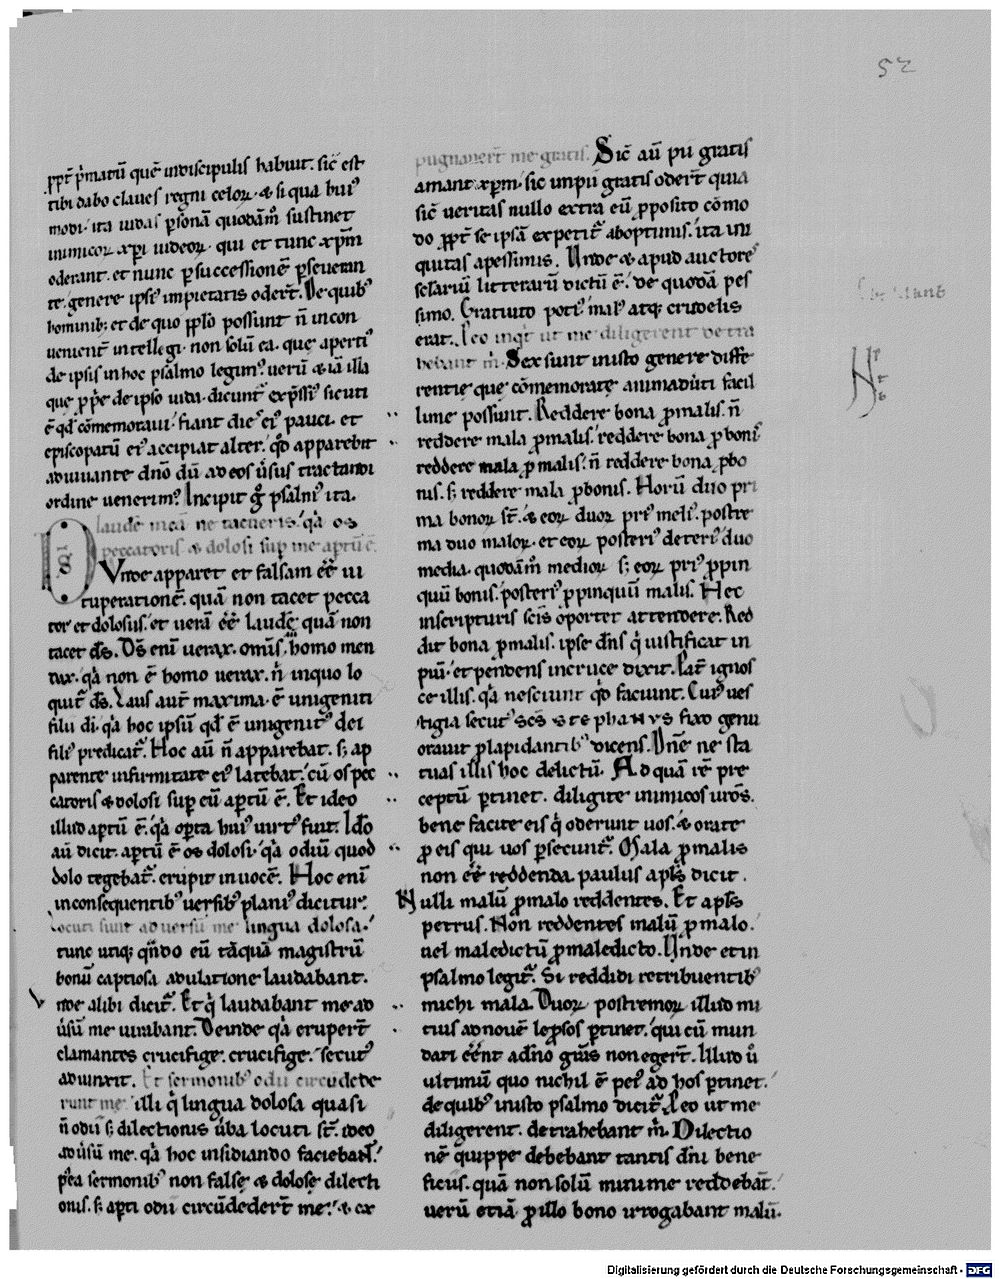 52
ꝓpt̄ p̄matū quē indiscipulis habuit. sic̄ est
tibi dabo claues regni celoꝝ. & si qua hui᾽
modi. ita iudas ꝑsonā quodam̄ sustinet
inimicoꝝ xp̄i iudeoꝝ. qui et tunc xp̄m
oderant. et nunc ꝑsuccessionē ꝑseueran
te. genere ipse᾽ impietatis odert̄. De quib᾽
hominib; et de quo ꝓplo possunt n̄ incon
uenient̄ intellegi. non solū ea. que aperti᾽
de ipsis in hoc psalmo legim᾽. uerū & iā illa
que ꝓpe de ipso iuda. dicunt᾽ exp̄ssi᾽ sicuti
ē qd̄ cōmemoraui. fiant die᾽ ei᾽ pauci. et
episcopatū ei᾽ accipiat alter. qd̄ apparebit
adiuuante dn̄o dū ad eos ūsus tractandi
ordine uenerim᾽. Incipit g̊ psalm᾽ ita.
D̄s laudē meā ne tacueris. q̄a os
peccatoris & dolosi sup me aptū ē.
Vnde apparet et falsam eē̄ ui
tuperationē. quā non tacet pecca
tor et dolosus. et uerā eē̄ laudē. quā non
tacet ds̄. Ds̄ enī uerax. omīs homo men
dax. q̄a non ē homo uerax. n̄ in quo lo
quit̄ ds̄. Laus aut̄ maxima ē unigeniti
filii di. q̄a hoc ipsū qd̄ ē unigenit᾽ dei
fili᾽ predicat̄. Hoc aū n̄ apparebat. s; ap
parente infirmitate ei᾽ latebat. cū os pec
catoris & dolosi sup eū aptū ē. Et ideo
illud aptū ē. q̄a opta hui᾽ uirt᾽ fuit. Ido
aū dicit. aptū ē os dolosi. q̄a odiū quod
dolo tegebat̄. erupit in uocē. Hoc enī
in consequentib᾽ uersib᾽ plani᾽ dicitur.
Locuti sunt aduersū me lingua dolosa.
tunc utiq; qn̄do eū tāquā magistrū
bonū captiosa adulatione laudabant.
nde alibi dicit̄. Et q̄ laudabant me. ad
ūsū me iurabant. Deinde q̄a erupert̄
clamantes crucifige. crucifige. secut᾽
adiunxit. Et sermonib᾽ odii circūdede
runt me. illi q̄ lingua dolosa quasi
n̄ odii s; dilectionis ūba locuti st̄. ideo
adūsū me. q̄a hoc insidiando faciebaɴ̄.
p̄ea sermonib᾽ non false & dolose dilecti
onis. s; apti odii circūdedert̄ me. & ex
pugnauert̄ me gratis. Sic̄ aū pii gratis
amant xp̄m. sic inpii gratis odert̄ quia
sic̄ ueritas nullo extra eū ꝓposito cōmo
do ꝓpt̄ se ipsā expetit̄ ab optimis. ita ini
quitas a pessimis. Unde & apud auctore᾽
sclariū litterarū dictū ē. de quodā pes
simo. Gratuito poti᾽ mal᾽ atq; crudelis
erat. Peo inqt̄ ut me diligerent detra
hebant m̄. Sex sunt in isto genere diffe
rentie que cōmemorate animadūti facil
lime possunt. Reddere bona ꝓ malis. n̄
reddere mala ꝓ malis. reddere bona ꝓ boni᾽
reddere mala ꝓ malis. n̄ reddere bona ꝓ bo
nis. s; reddere mala ꝓ bonis. Horū duo pri
ma bonoꝝ st̄. & eoꝝ duoꝝ pri᾽ meli᾽. postre
ma duo maloꝝ. et eoꝝ posteri᾽ deteri᾽ duo
media. quodam̄ medioꝝ s; eoꝝ pri᾽ ꝓpin
quū bonis. posteri᾽ ꝓpinquū malis. Hec
in scripturis scīs oportet attendere. Red
dit bona ꝓ malis. ipse dn̄s q̄ iustificat in
piū. et pendens in cruce dixit. Pat̄ ignos
ce illis. q̄a nesciunt qd̄ faciunt. Cui᾽ ues
tigia secut᾽ scs̄ stephanus fixo genu
orauit ꝓ lapidantib᾽ dicens. Dn̄e ne sta
tuas illis hoc delictū. Ad quā rē pre
ceptū ꝑtinet. diligite inimicos uros̄.
bene facite eis q̄ oderunt uos. & orate
ꝓ eis qui uos ꝑsecunt̄. Mala ꝓ malis
non eē̄ reddenda. paulus apl̄s dicit.
Nulli malū ꝓ malo reddentes. Et apl̄s
petrus. Non reddentes malū ꝓ malo.
uel maledictū ꝓ maledicto. Unde et in
psalmo legit̄. Si reddidi retribuentib᾽
michi mala. Duoꝝ postremoꝝ illud mi
tius ad nouē leprosos ꝑtinet. qui cū mun
dati eēnt a dn̄o grās non egert̄. Illud ū
ultimū quo nichil ē pei᾽ ad hos ꝑtinet.
de quib᾽ in isto psalmo dicit̄. Peo ut me
diligerent. detrahebant m̄. Dilectio
nē quippe debebant tantis dn̄i bene
ficiis. quā non solū minime reddebāt.
uerū etiā ꝓ illo bono irrogabant malū.
Digitalisierung gefördert durch die Deutsche Forschungsgemeinschaft - DFG